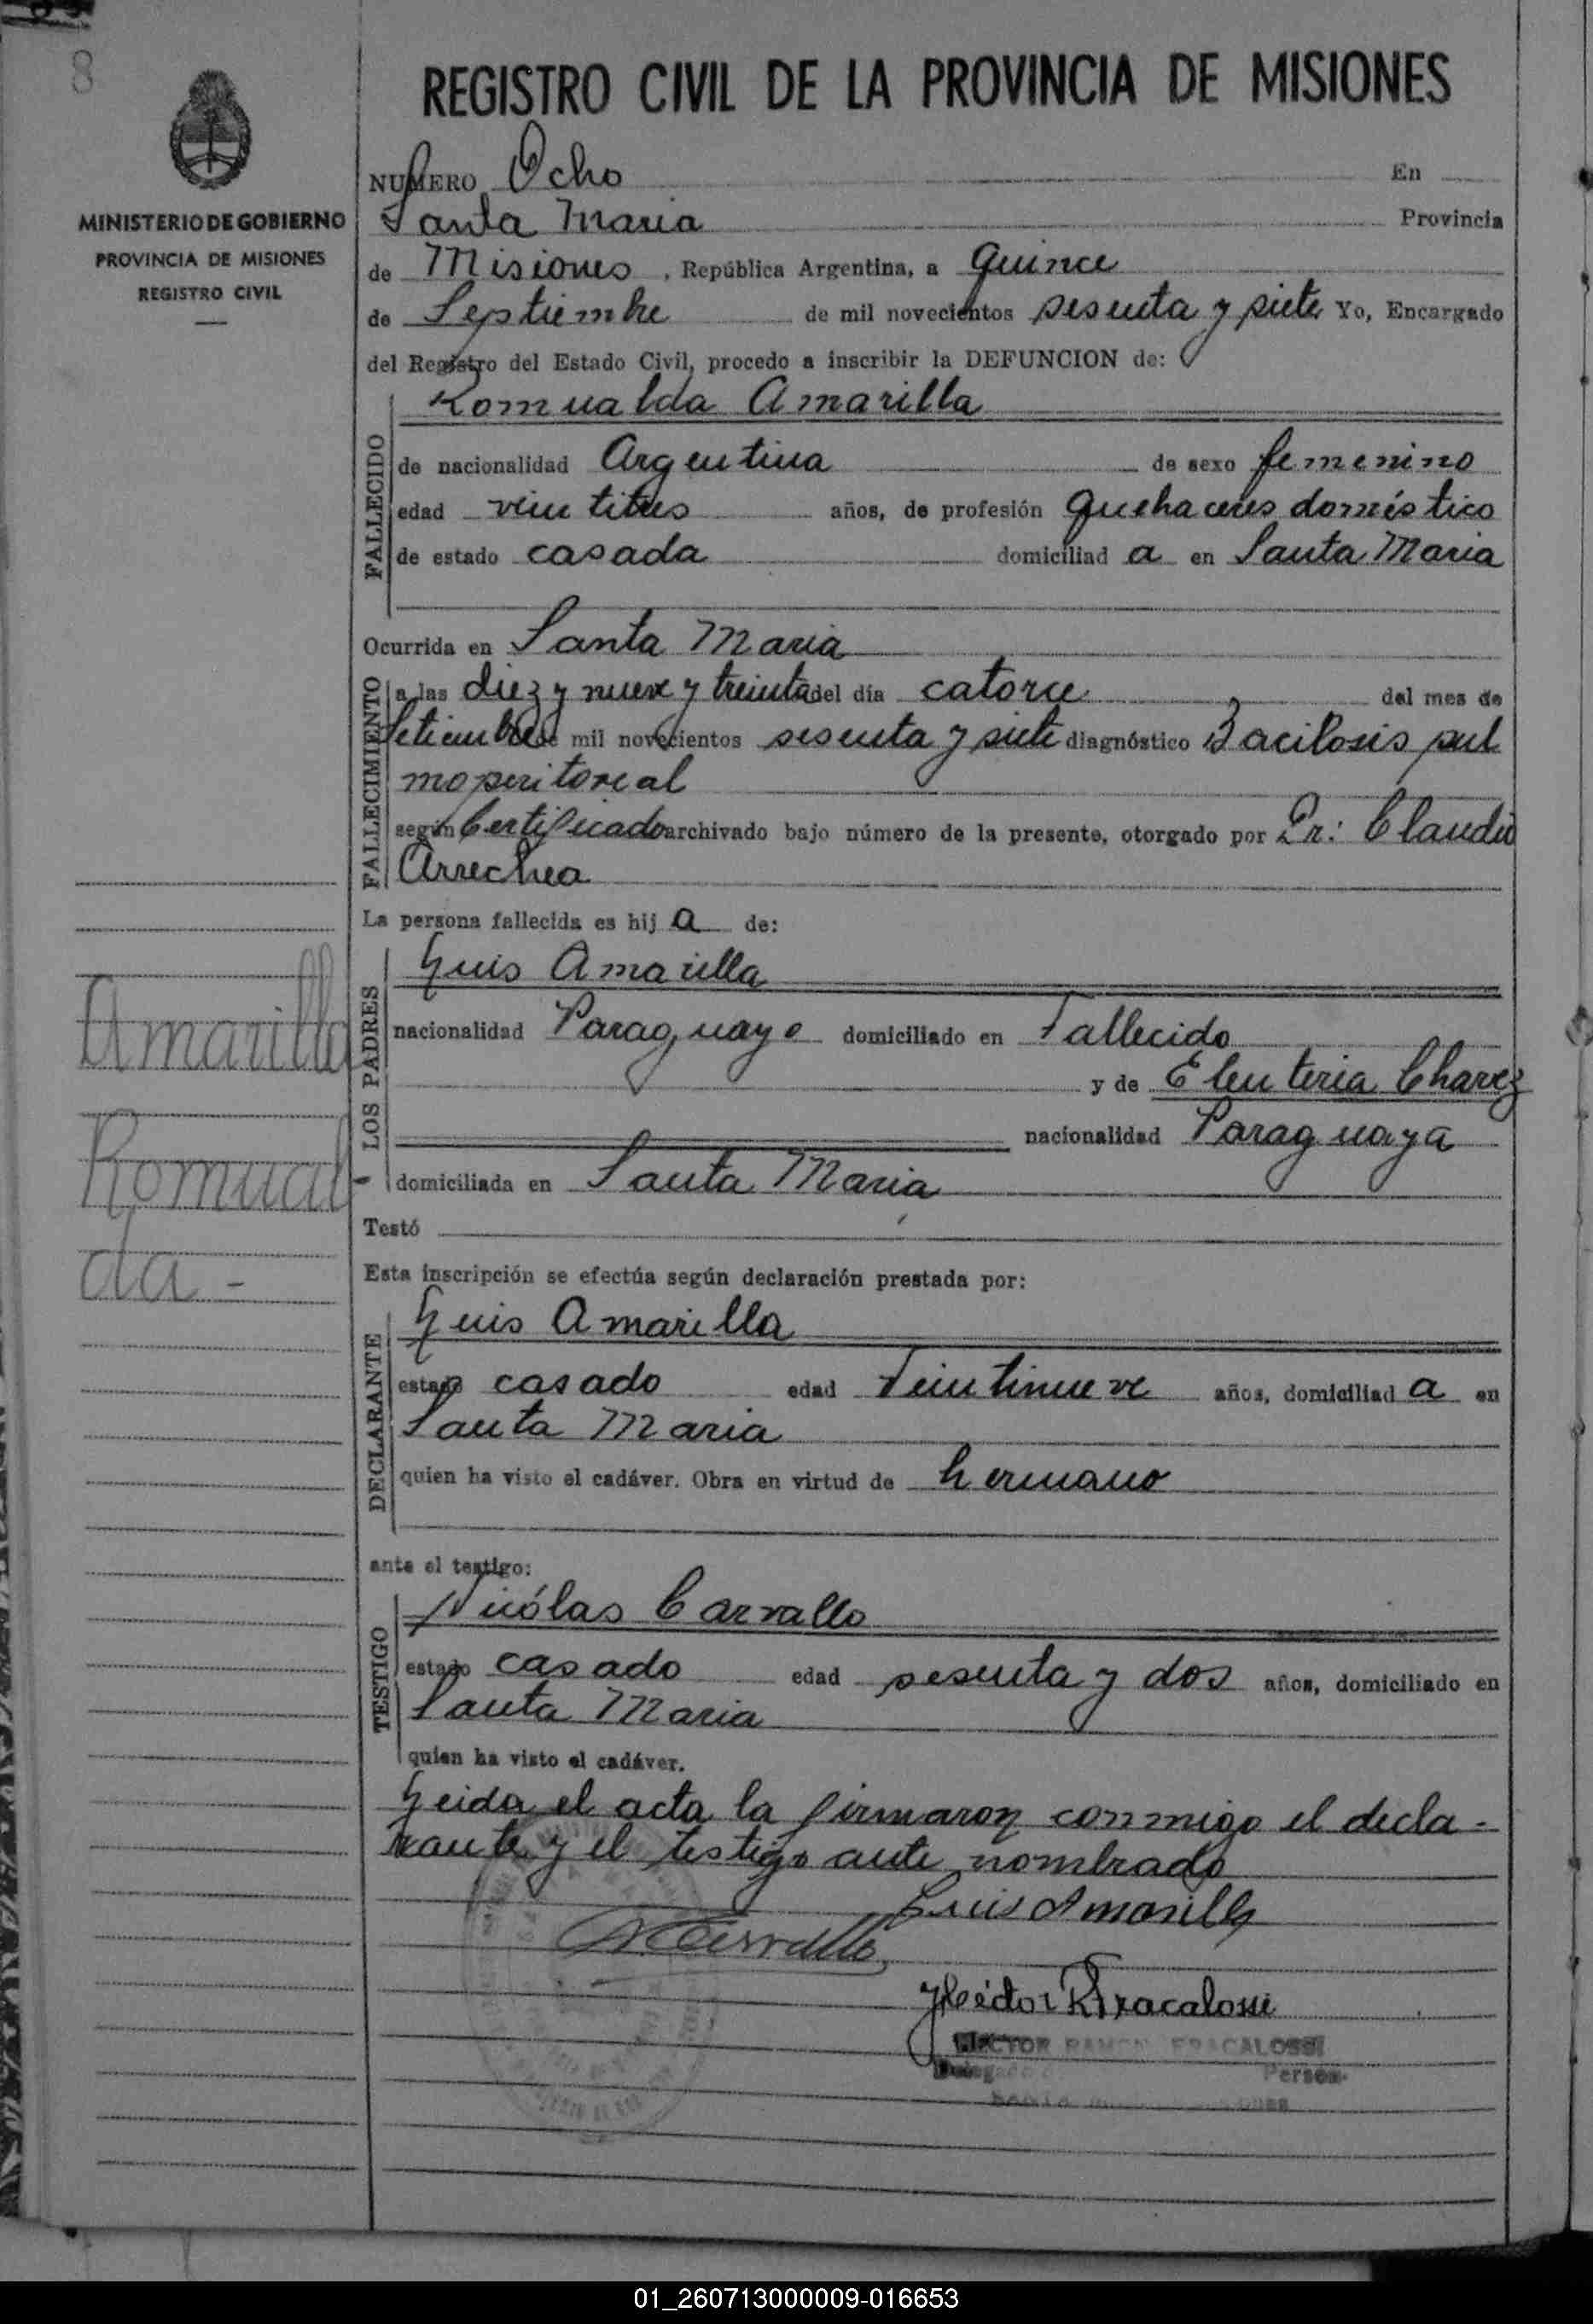 8
REGISTRO CIVIL DE LA PROVINCIA DE MISIONES
MINISTERIO DE GOBIERNO
PROVINCIA DE MISIONES
REGISTRO CIVIL
NUMERO Ocho En
Santa Maria Provincia
de Misiones, República Argentina, a quince
de Septiembre de mil novecientos sesenta y siete Yo, Encargado
del Registro del Estado Civil, procedo a inscribir la DEFUNCION de:
FALLECIDO
Romualda Amarilla
de nacionalidad Argentina de sexo femenino
edad veintitres años, de profesión quehaceres doméstico
de estado casada domiciliad a en Santa Maria
Ocurrida en Santa Maria
FALLECIMIENTO
a las diez y nueve y treinta del día catorce del mes de
Setiembre de mil novecientos sesenta y siete diagnóstico Bacilosis pul
moperitoneal
según Certificado archivado bajo número de la presente, otorgado por Dr: Claudio
Arrechea
La persona fallecida es hij a de:
LOS PADRES
Luis Amarilla
nacionalidad Paraguayo domiciliado en Fallecido
y de Eleuteria Chavez
nacionalidad Paraguaya
domiciliada en Santa Maria
Amarilla
Romual
da -
Testó
Esta inscripción se efectúa según declaración prestada por:
DECLARANTE
Luis Amarilla
estado casado edad Veintinueve años, domiciliad a en
Santa Maria
quien ha visto el cadáver. Obra en virtud de hermano
ante el testigo:
TESTIGO
Nicólas Carvallo
estado casado edad sesenta y dos años, domiciliado en
Santa Maria
quien ha visto el cadáver.
Leida el acta la firmaron conmigo el decla-
rante y el testigo ante nombrado
Luis Amarilla
NCarvallo
Héctor R Fracalossi
HECTOR RAMON FRACALOSSI
01_260713000009-016653